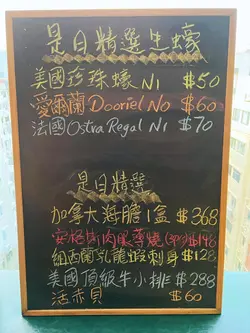 是日精選生蠔
美國珍珠蠔 N1 $50
愛爾蘭 Dooriel No $60
法國 Ostra Regal N1 $70
是日精選
加拿大海膽1盒 $368
安格斯肉眼蒸燒 (3P) $148
紐西蘭乳龍蝦刺身 $128
美國頂級牛小排 $288
活赤貝 $60